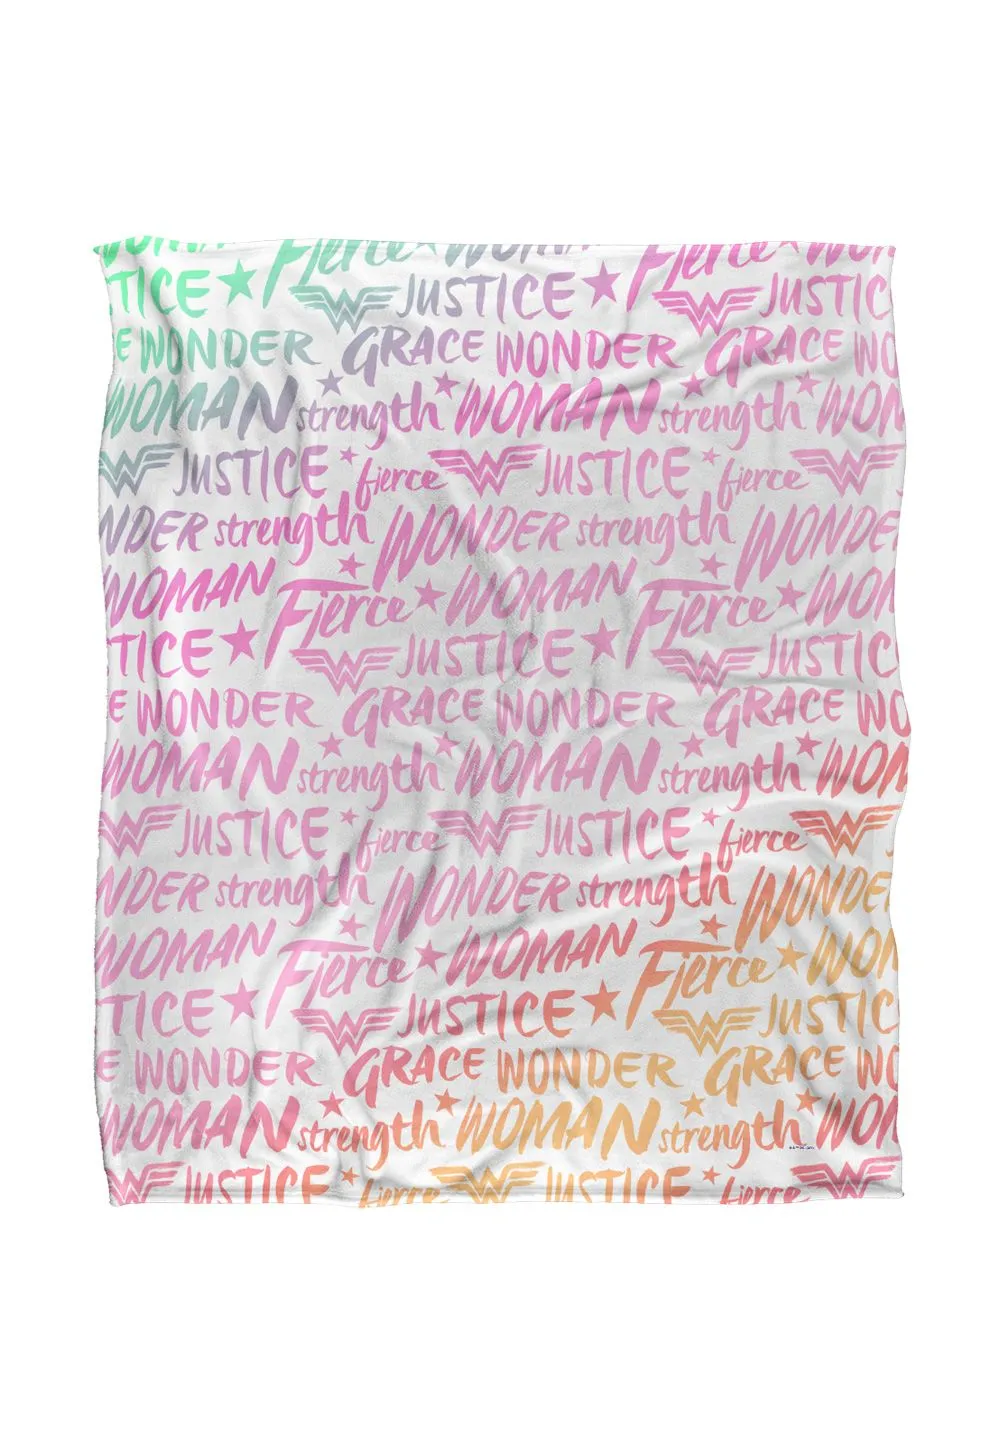 WOMAN Fierce WOMAN Fierce WOMAN
TICE JUSTICE JUSTIC
E WONDER GRACE WONDER GRACE WO
WOMAN strength WOMAN strength WOM
JUSTICE fierce JUSTICE fierce J
NDER strength WONDER strength WONDE
WOMAN Fierce WOMAN Fierce WOM
TICE JUSTICE JUSTIC
E WONDER GRACE WONDER GRACE WO
WOMAN strength WOMAN strength WOM
JUSTICE fierce JUSTICE fierce J
NDER strength WONDER strength WONDE
WOMAN Fierce WOMAN Fierce WOM
TICE JUSTICE JUSTIC
E WONDER GRACE WONDER GRACE WO
WOMAN strength WOMAN strength WOM
JUSTICE fierce JUSTICE fierce